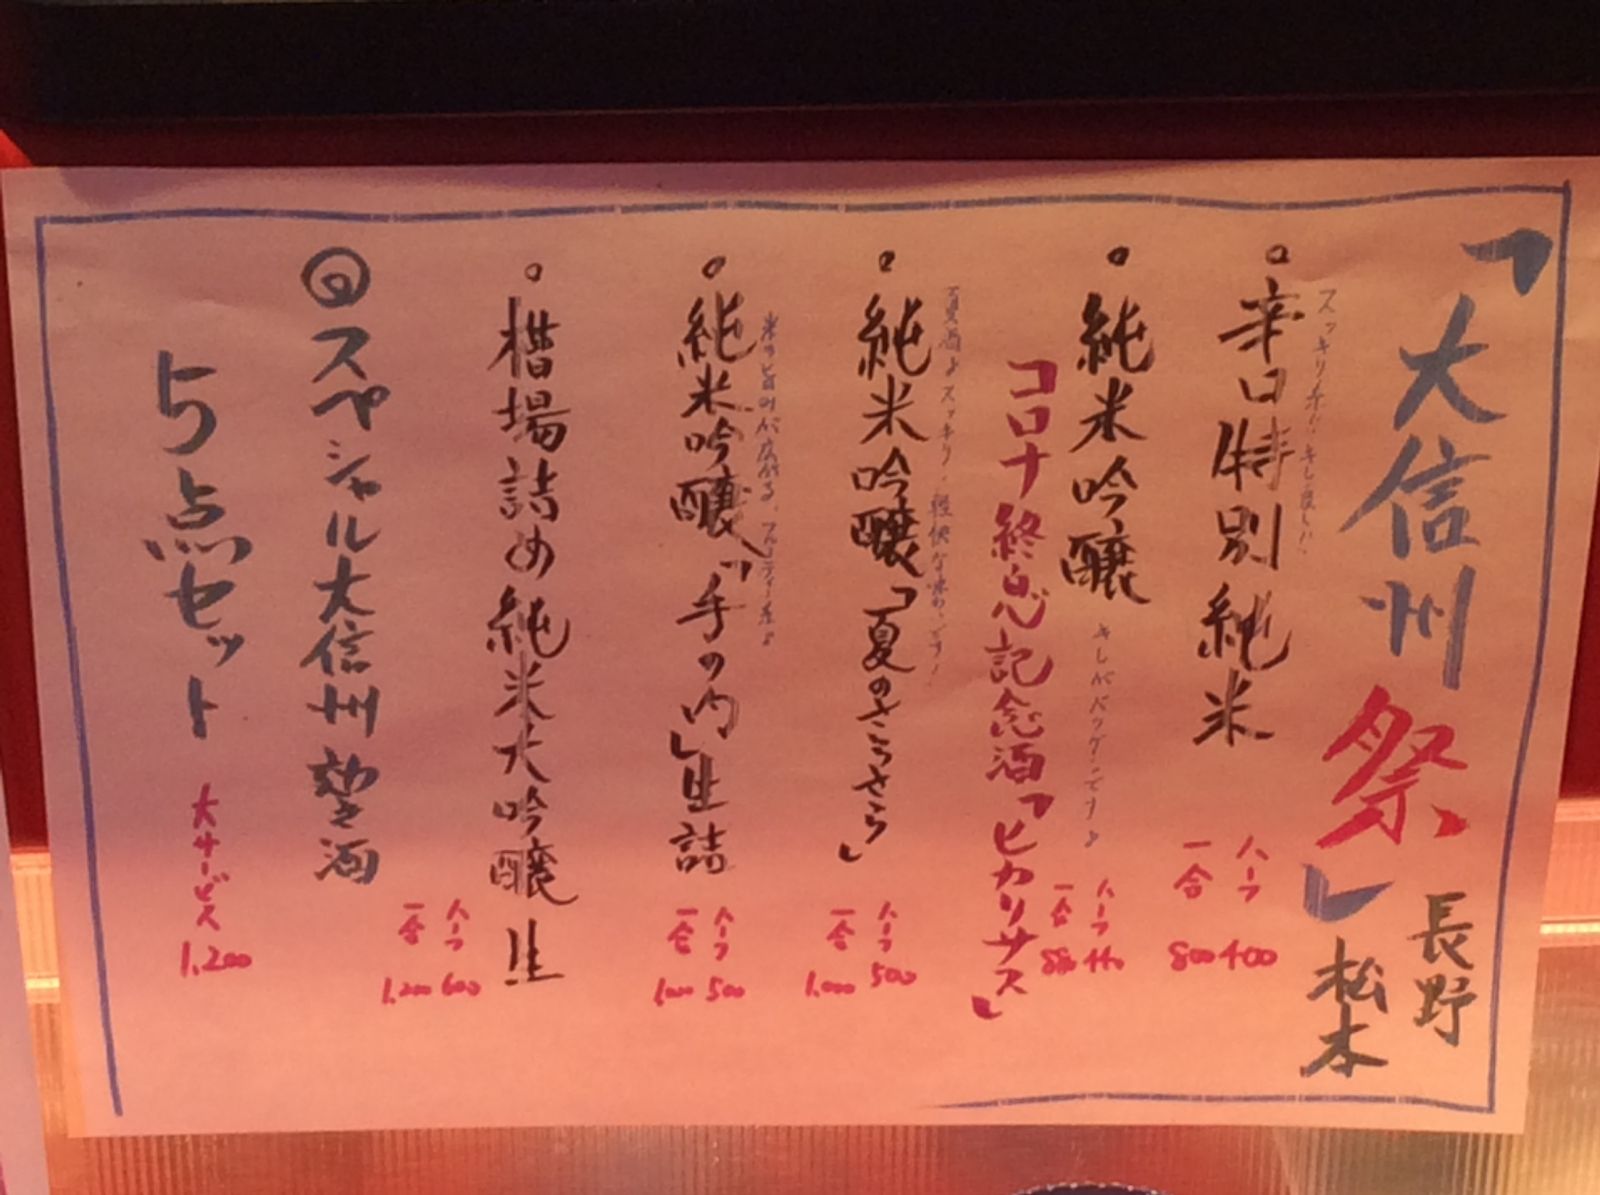 「大信州祭」
長野
松本
。辛口特別純米
ハーフ 400
一合 800
。純米吟醸
キレがバツグンです♪
ハーフ 440
一合 880
コロナ終息記念酒「ヒカリサス」
夏酒♪スッキリ、軽快な味わいです!
。純米吟醸「夏のさらさら」
ハーフ 500
一合 1,000
米の旨味が広がる、フルーティー系♪
。純米吟醸「手の内」生詰
ハーフ 500
一合 1,000
。槽場詰め純米大吟醸生
ハーフ 600
一合 1,200
◎スペシャル大信州梨酒
5点セット
大サービス
1,200